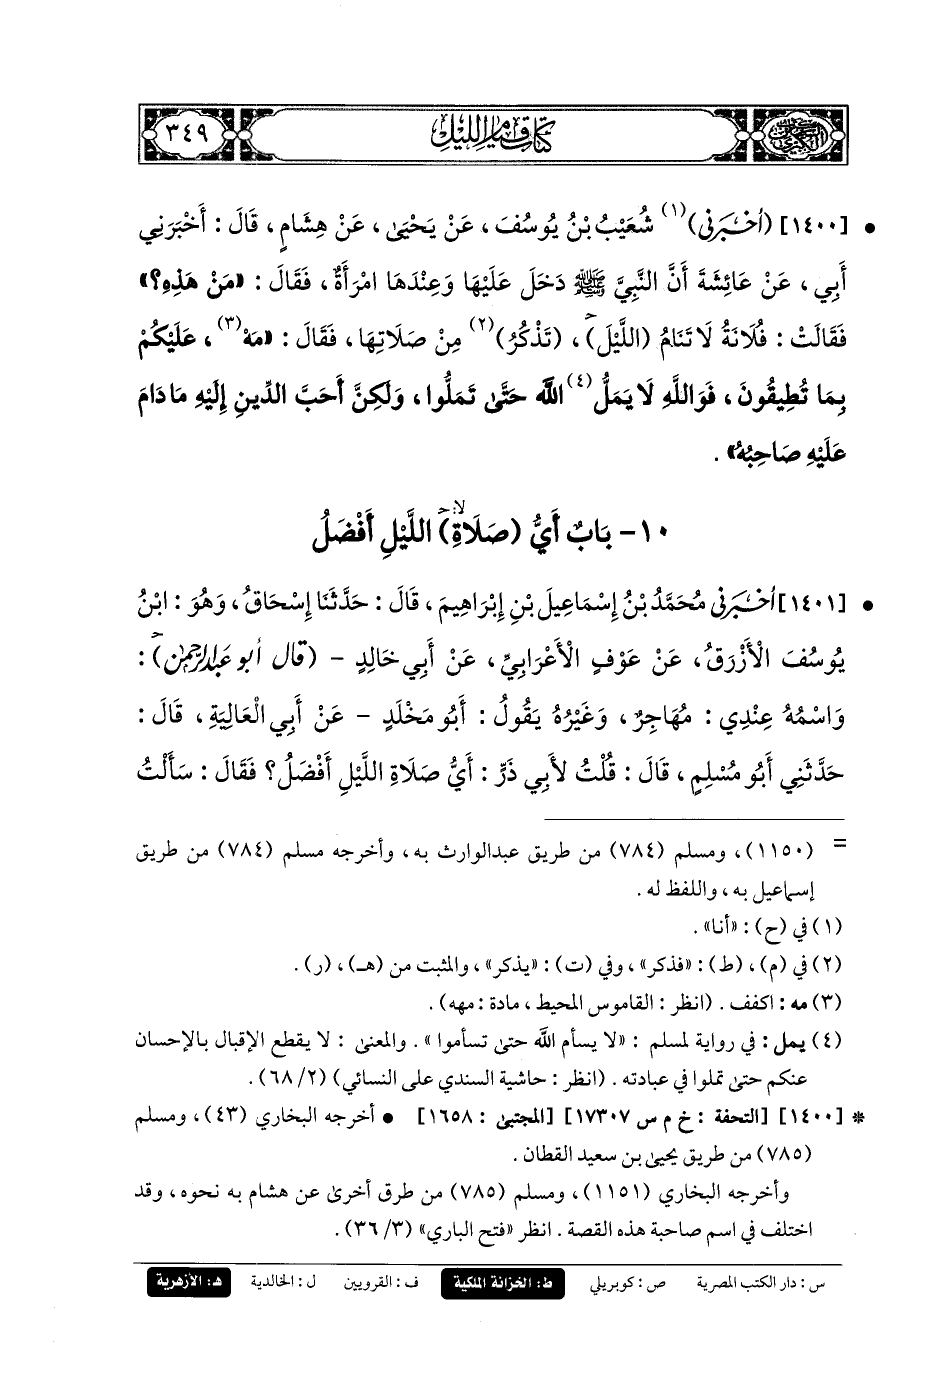 كتاب قيام الليل ٣٤٩
• [١٤٠٠] (أَخْبَرَنِي)(١) شُعَيْبُ بْنُ يُوسُفَ، عَنْ يَحْيَى، عَنْ هِشَامٍ، قَالَ: أَخْبَرَنِي
أَبِي، عَنْ عَائِشَةَ أَنَّ النَّبِيَّ ﷺ دَخَلَ عَلَيْهَا وَعِنْدَهَا امْرَأَةٌ، فَقَالَ: «مَنْ هَذِهِ؟»
فَقَالَتْ: فُلَانَةُ لَا تَنَامُ (اللَّيْلَ)، (تَذْكُرُ)(٢) مِنْ صَلَاتِهَا، فَقَالَ: «مَهْ(٣)، عَلَيْكُمْ
بِمَا تُطِيقُونَ، فَوَاللَّهِ لَا يَمَلُّ(٤) اللَّهُ حَتَّى تَمَلُّوا، وَلَكِنَّ أَحَبَّ الدِّينِ إِلَيْهِ مَا دَامَ
عَلَيْهِ صَاحِبُهُ».
١٠- بَابٌ أَيُّ (صَلَاةِ) اللَّيْلِ أَفْضَلُ
• [١٤٠١] أَخْبَرَنِي مُحَمَّدُ بْنُ إِسْمَاعِيلَ بْنِ إِبْرَاهِيمَ، قَالَ: حَدَّثَنَا إِسْحَاقُ، وَهُوَ: ابْنُ
يُوسُفَ الْأَزْرَقُ، عَنْ عَوْفٍ الْأَعْرَابِيِّ، عَنْ أَبِي خَالِدٍ - (قال أبو عبدالرحمن):
وَاسْمُهُ عِنْدِي: مُهَاجِرٌ، وَغَيْرُهُ يَقُولُ: أَبُو مَخْلَدٍ - عَنْ أَبِي الْعَالِيَةِ، قَالَ:
حَدَّثَنِي أَبُو مُسْلِمٍ، قَالَ: قُلْتُ لِأَبِي ذَرٍّ: أَيُّ صَلَاةِ اللَّيْلِ أَفْضَلُ؟ فَقَالَ: سَأَلْتُ
= (١١٥٠)، ومسلم (٧٨٤) من طريق عبدالوارث به، وأخرجه مسلم (٧٨٤) من طريق
إسماعيل به، واللفظ له.
(١) في (ح): «أنا».
(٢) في (م)، (ط): «فذكر»، وفي (ت): «يذكر»، والمثبت من (هـ)، (ر).
(٣) مه: اكفف. (انظر: القاموس المحيط، مادة: مهه).
(٤) يمل: في رواية لمسلم: «لا يسأم الله حتى تسأموا». والمعنى: لا يقطع الإقبال بالإحسان
عنكم حتى تملوا في عبادته. (انظر: حاشية السندي على النسائي) (٢/ ٦٨).
* [١٤٠٠] [التحفة: خ م س ١٧٣٠٧] [المجتبى: ١٦٥٨] • أخرجه البخاري (٤٣)، ومسلم
(٧٨٥) من طريق يحيى بن سعيد القطان.
وأخرجه البخاري (١١٥١)، ومسلم (٧٨٥) من طرق أخرى عن هشام به نحوه، وقد
اختلف في اسم صاحبة هذه القصة. انظر «فتح الباري» (٣/ ٣٦).
س: دار الكتب المصرية ص: كوبريلي ط: الخزانة الملكية ف: القرويين ل: الخالدية هـ: الأزهرية